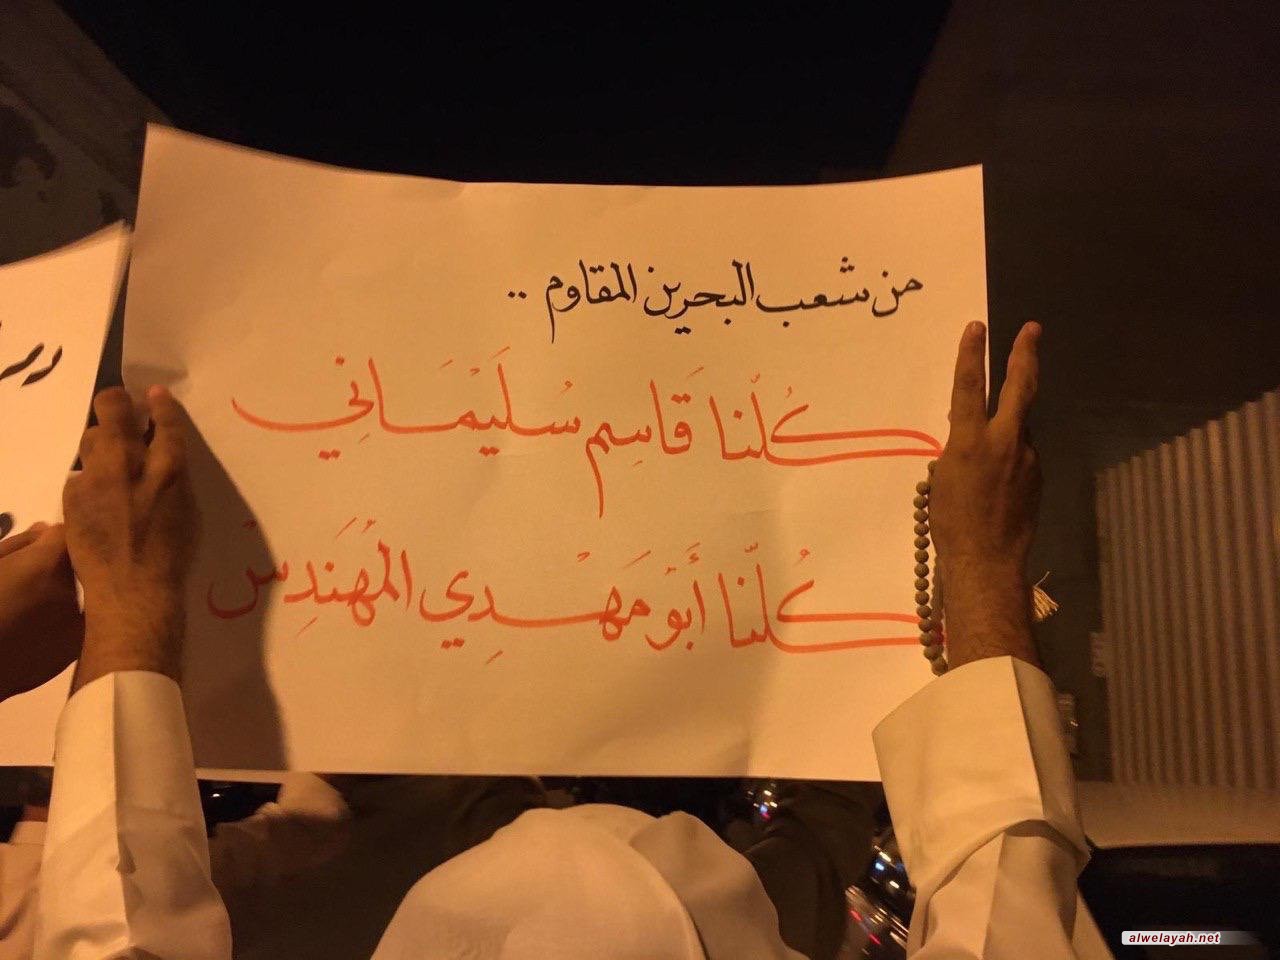 من شعب البحرين المقاوم ..
كُلّنا قَاسِم سُلَيْمَاني
كُلّنا أَبوْ مَهْدِي المُهَندِسْ
alwelayah.net